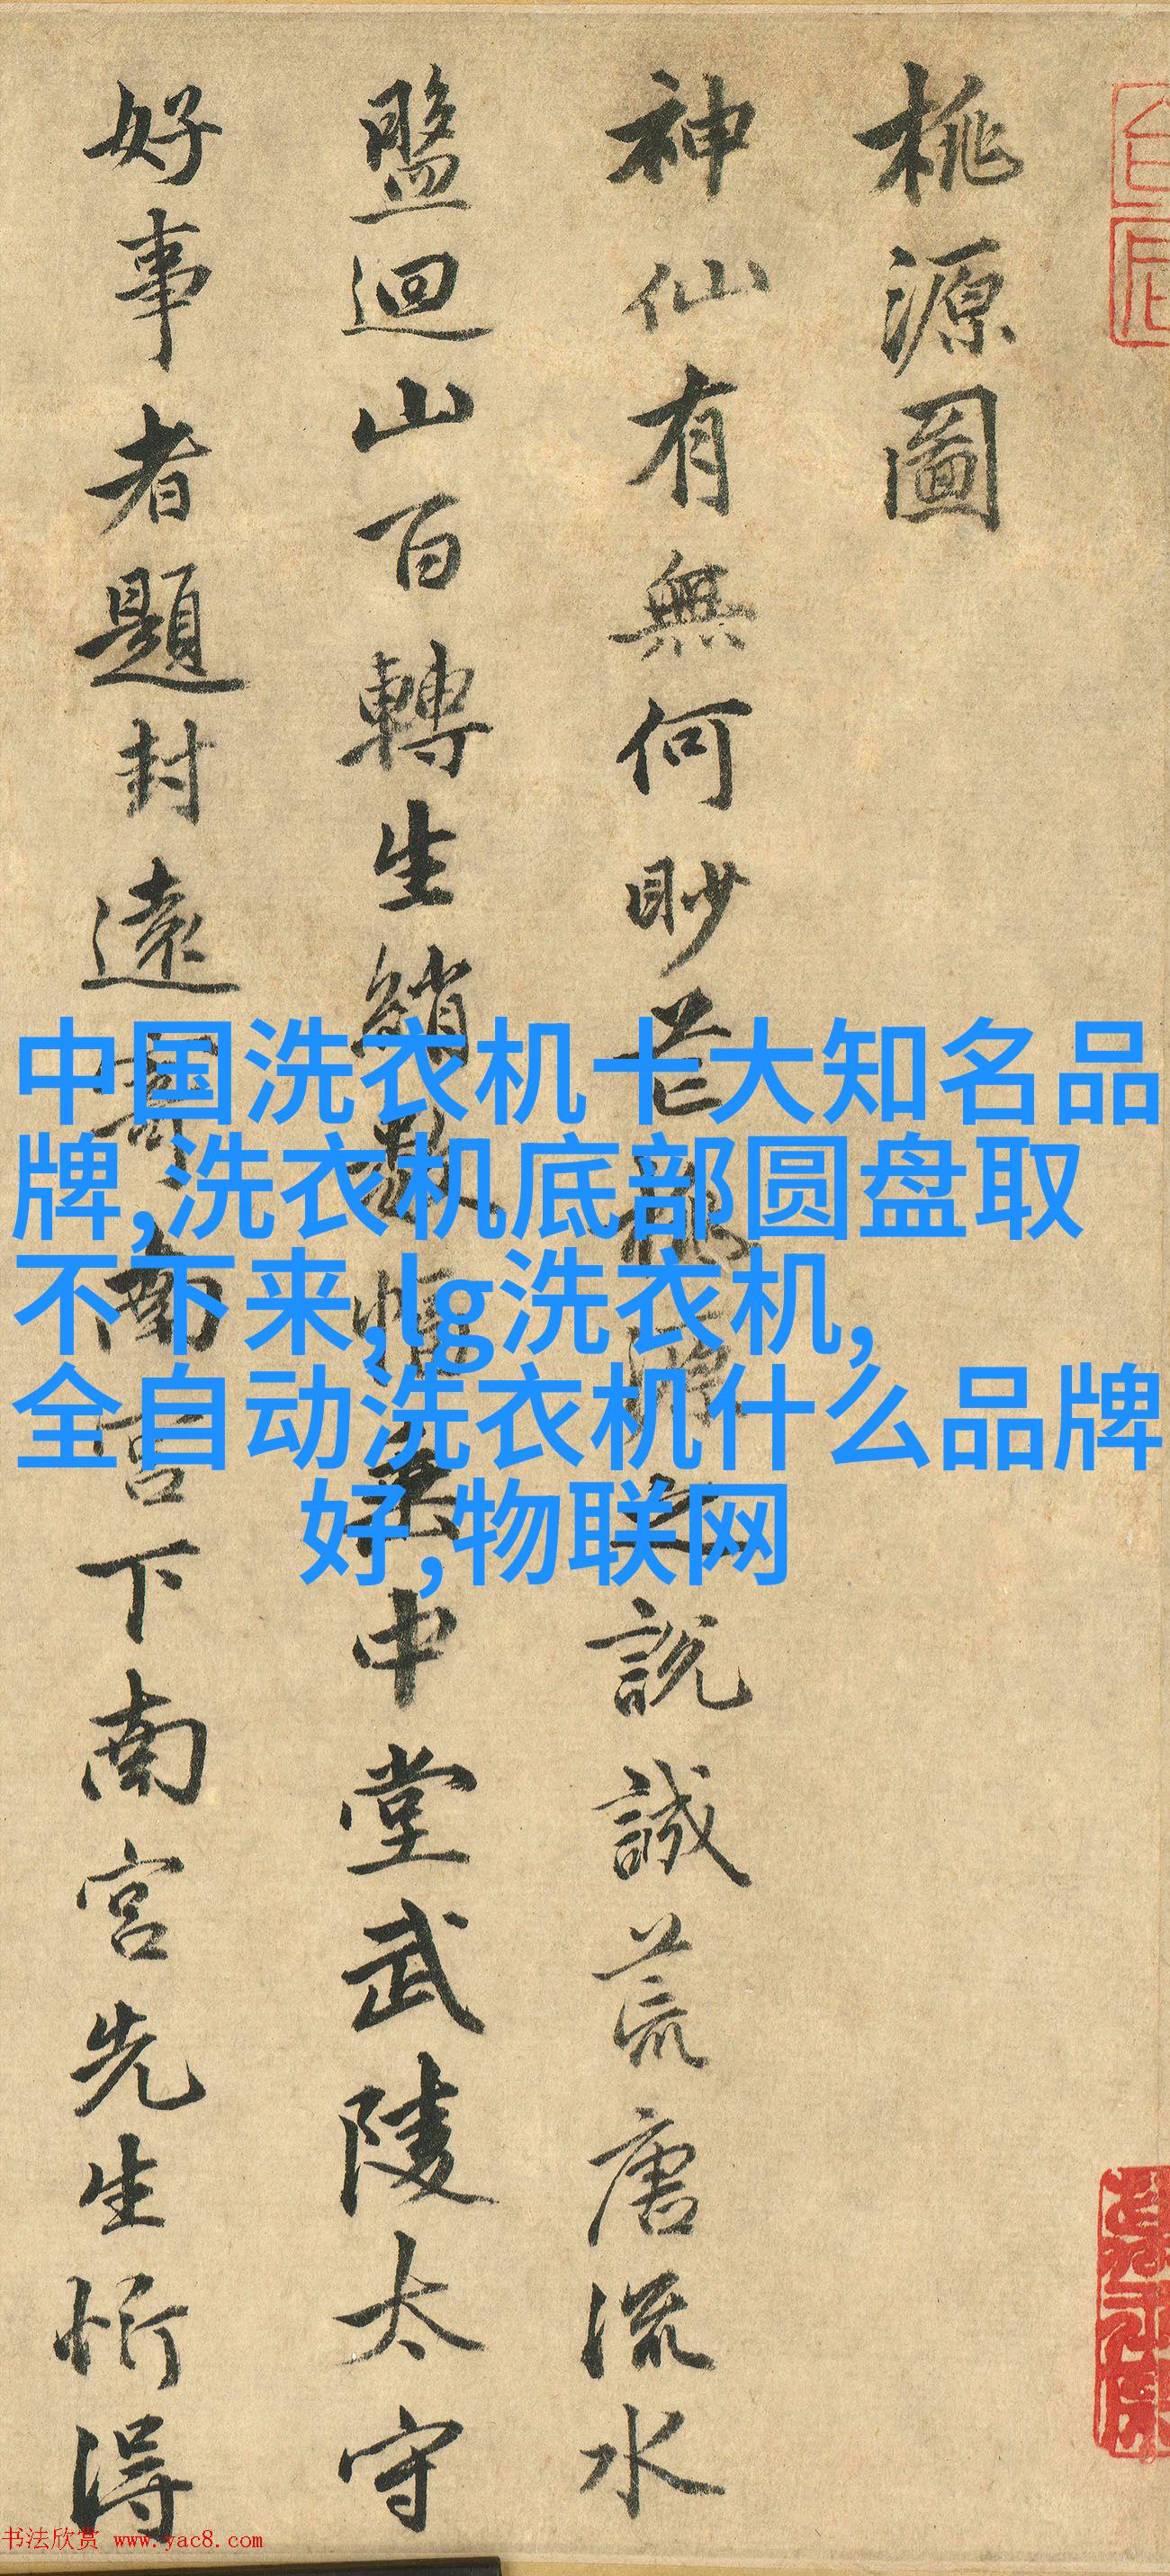 桃源圖
神仙有無何眇芒桃源之說誠荒唐流水
盤迴山百轉生綃數幅垂中堂武陵太守
好事者題封遠寄南宮下南宮先生忻得
中国洗衣机十大知名品
牌,洗衣机底部圆盘取
不下来,lg洗衣机,
全自动洗衣机什么品牌
好,物联网
书法欣赏 www.yac8.com